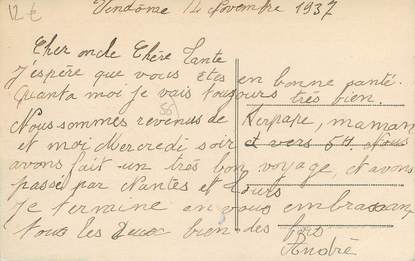 12 €
Vendôme 14 Novembre 1937
Cher oncle Chère Tante
J'espère que vous êtes en bonne santé.
Quanta moi je vais toujours très bien.
Nous sommes revenus de Kerpape, maman
et moi Mercredi soir et vers 5H. Nous
avons fait un très bon voyage, et avons
passé par Nantes et Tours
Je termine en vous embrassant
tous les deux bien des fois
André